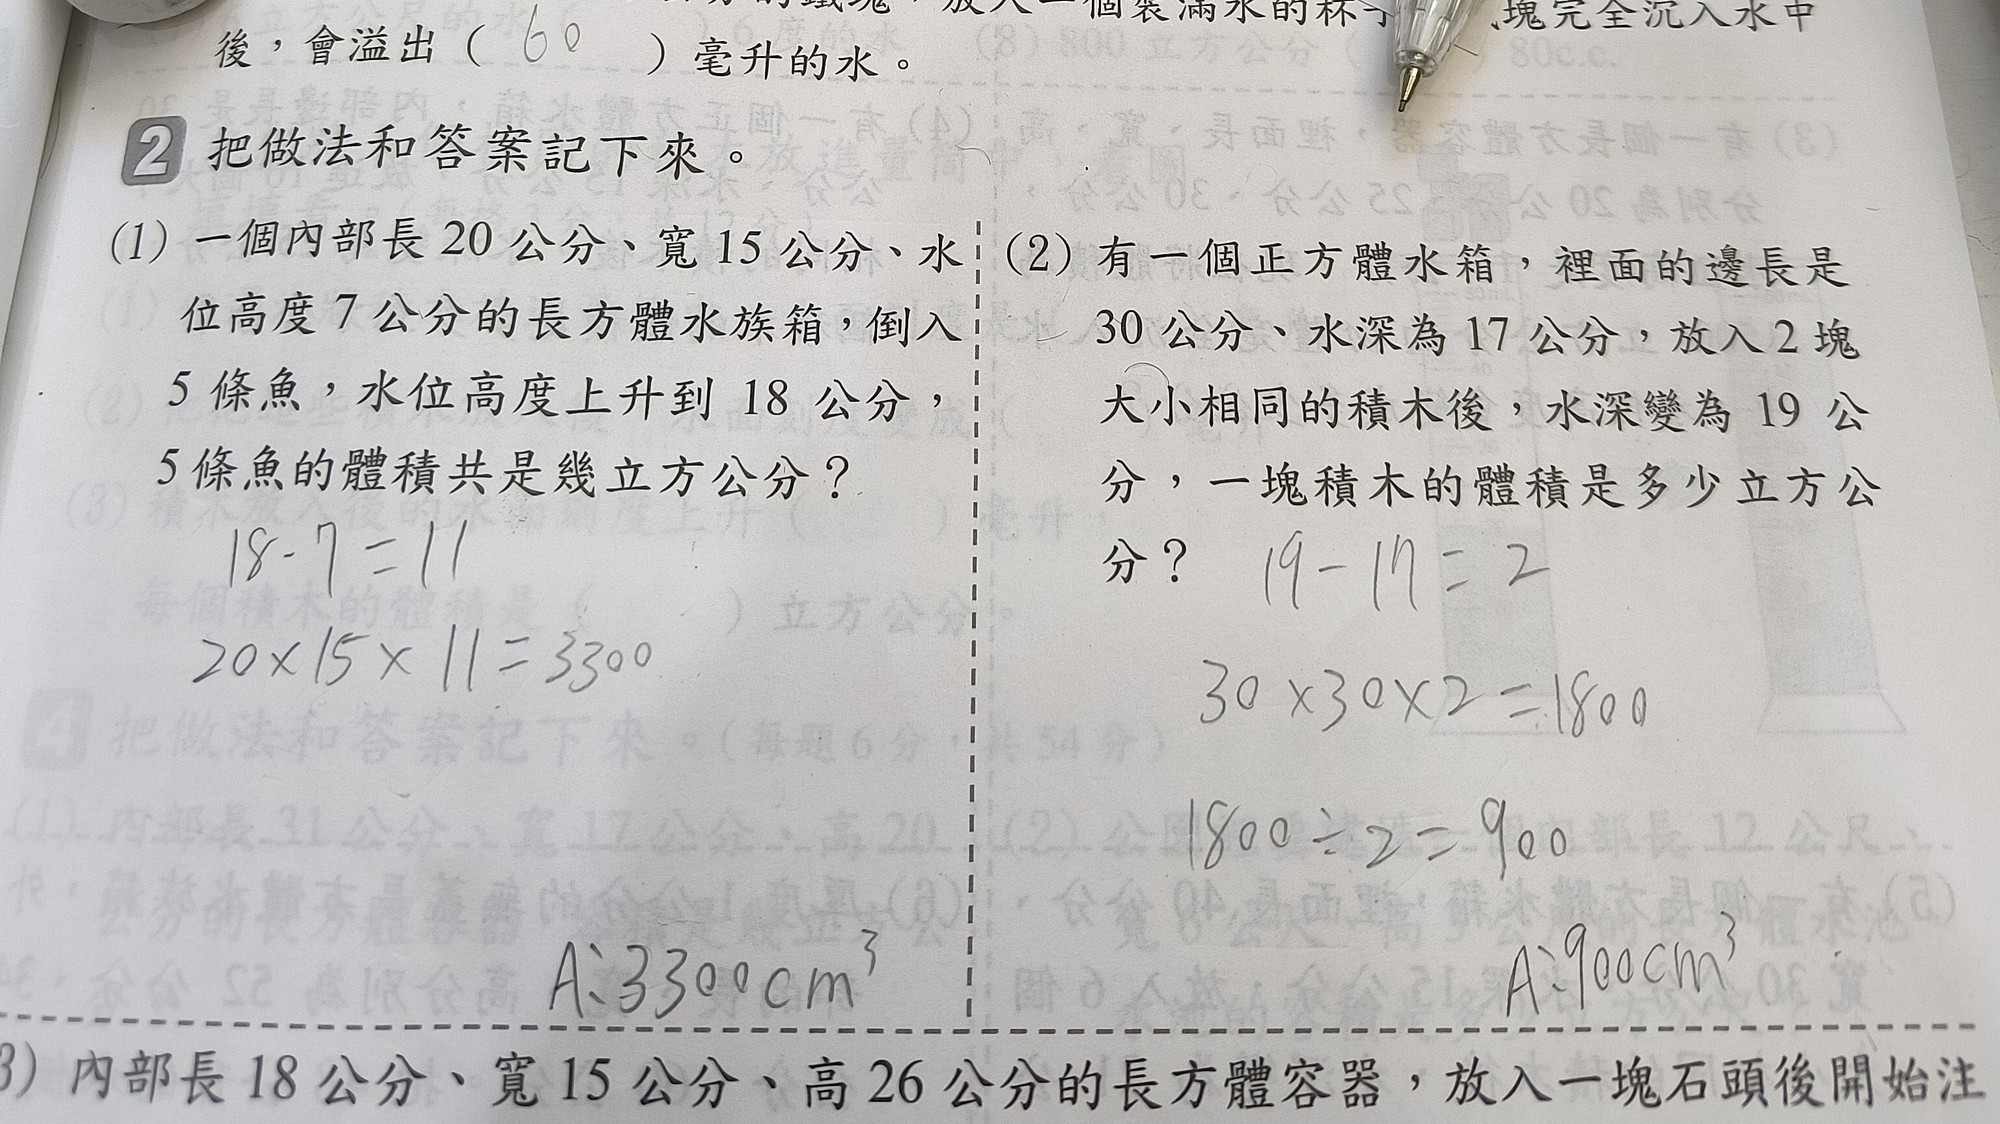 放入一個裝滿水的杯 塊完全沉入水中
後，會溢出（ 60 ）毫升的水。
2 把做法和答案記下來。
(1) 一個內部長 20 公分、寬 15 公分、水
位高度 7 公分的長方體水族箱，倒入
5 條魚，水位高度上升到 18 公分，
5 條魚的體積共是幾立方公分？
18-7=11
20×15×11=3300
A:3300cm³
(2) 有一個正方體水箱，裡面的邊長是
30 公分、水深為 17 公分，放入 2 塊
大小相同的積木後，水深變為 19 公
分，一塊積木的體積是多少立方公
分？ 19-17=2
30×30×2=1800
1800÷2=900
A:900cm³
3) 內部長 18 公分、寬 15 公分、高 26 公分的長方體容器，放入一塊石頭後開始注